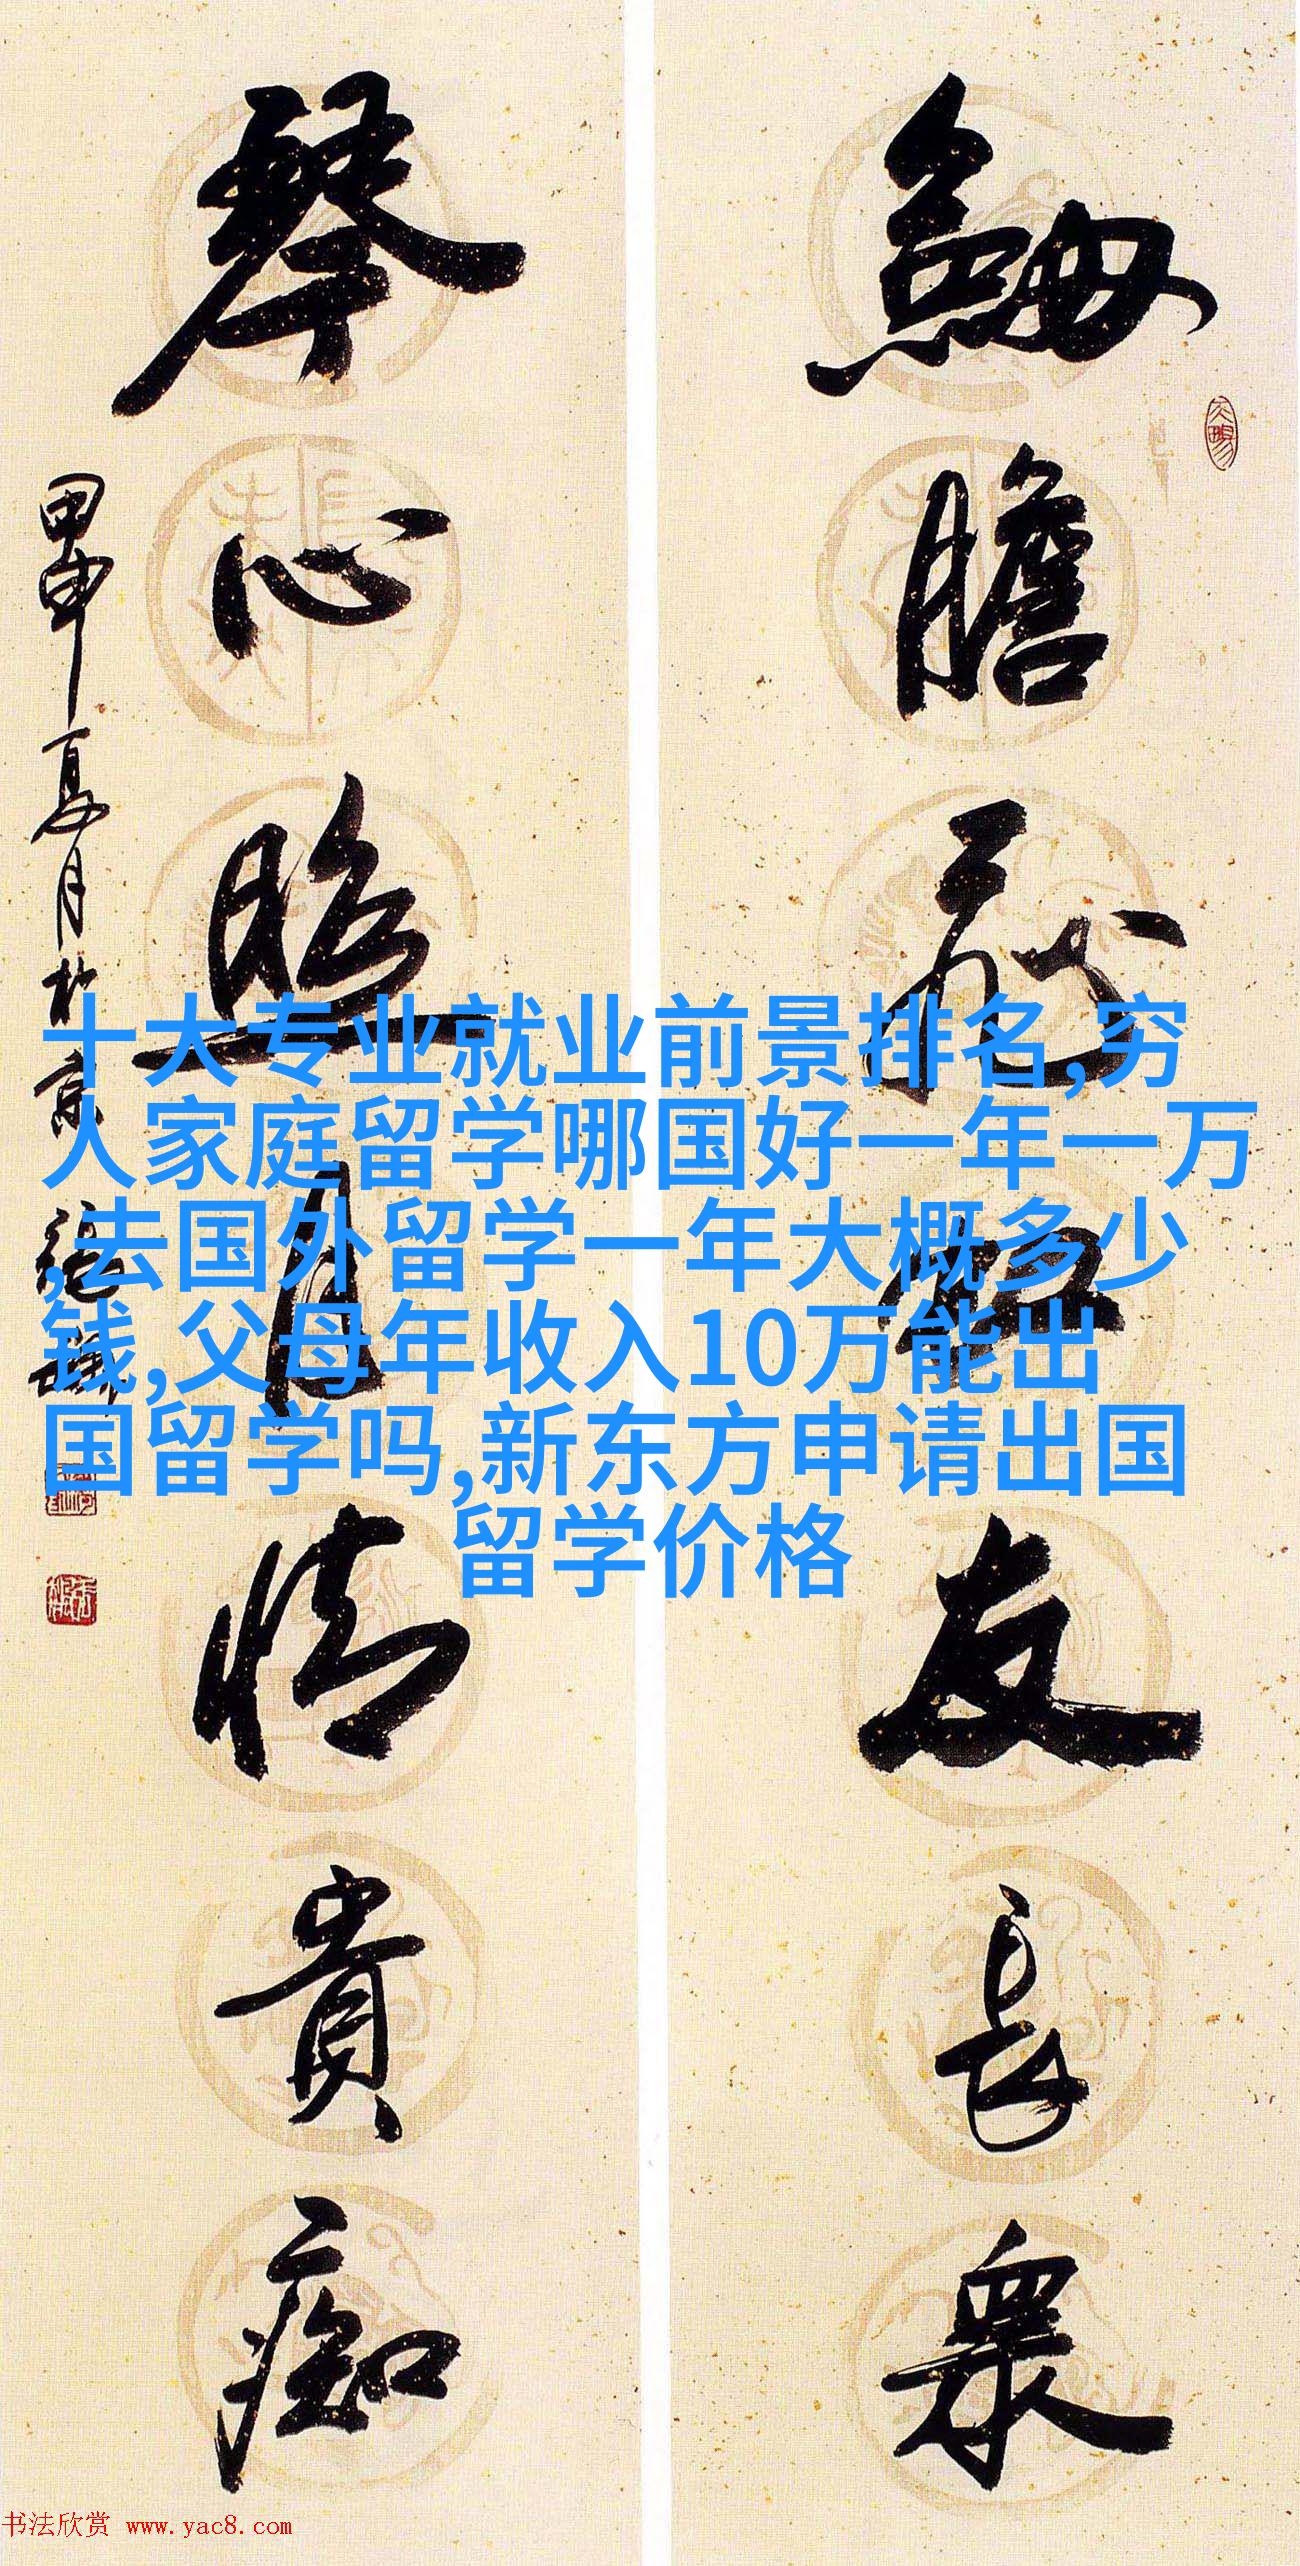 劍膽友長眾
琴心照月情貴痴
甲申夏月於京
十大专业就业前景排名,穷
人家庭留学哪国好一年一万
,去国外留学一年大概多少
钱,父母年收入10万能出
国留学吗,新东方申请出国
留学价格
书法欣赏 www.yac8.com